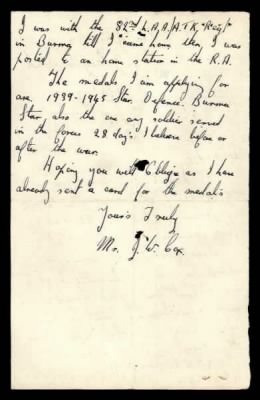 I was with the 82nd L.A.A/A.T.K. "Regt"
in Burma till I came home then I was
posted to an home station in the R.A.
The medals I am applying for
are. 1939-1945 Star. Defence. Burma
Star, also the one any soldier served
in the forces 28 days I believe before or
after the war.
Hoping you will Oblige as I have
already sent a card for the medals
Yours Truly
Mr. J. W. Cox.